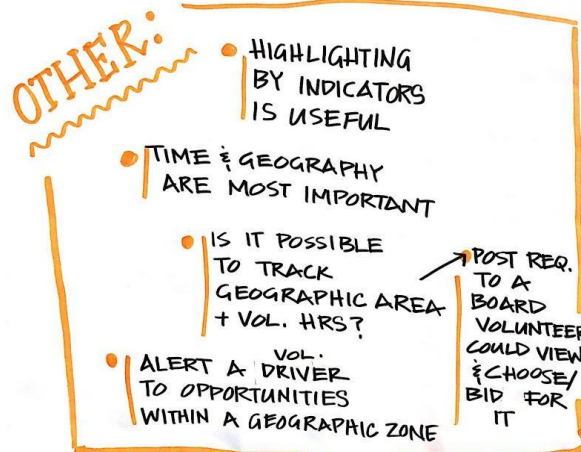 OTHER:
HIGHLIGHTING
BY INDICATORS
IS USEFUL
TIME & GEOGRAPHY
ARE MOST IMPORTANT
IS IT POSSIBLE
TO TRACK
GEOGRAPHIC AREA
+ VOL. HRS?
POST REQ.
TO A
BOARD
VOLUNTEER
COULD VIEW
& CHOOSE/
BID FOR
IT
VOL.
ALERT A DRIVER
TO OPPORTUNITIES
WITHIN A GEOGRAPHIC ZONE